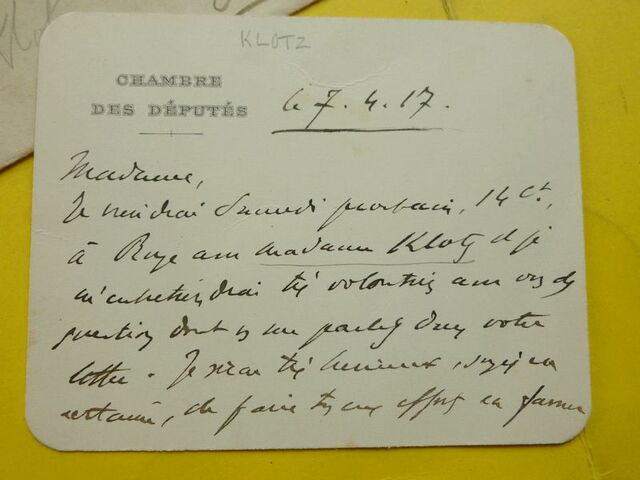 KLOTZ
CHAMBRE
DES DÉPUTÉS
le 7.4.17.
Madame,
Je viendrai Samedi prochain, 14 ct,
à Roye avec madame Klotz et je
m'entretiendrai très volontiers avec vous des
questions dont vs me parlez dans votre
lettre. Je serai très heureux, soyez en
certaine, de faire ts mes efforts en faveur